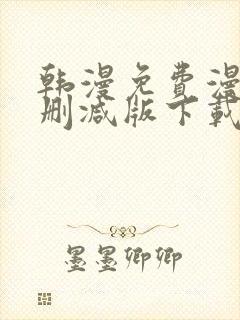 韩漫免费漫
删减版下载
墨墨卿卿